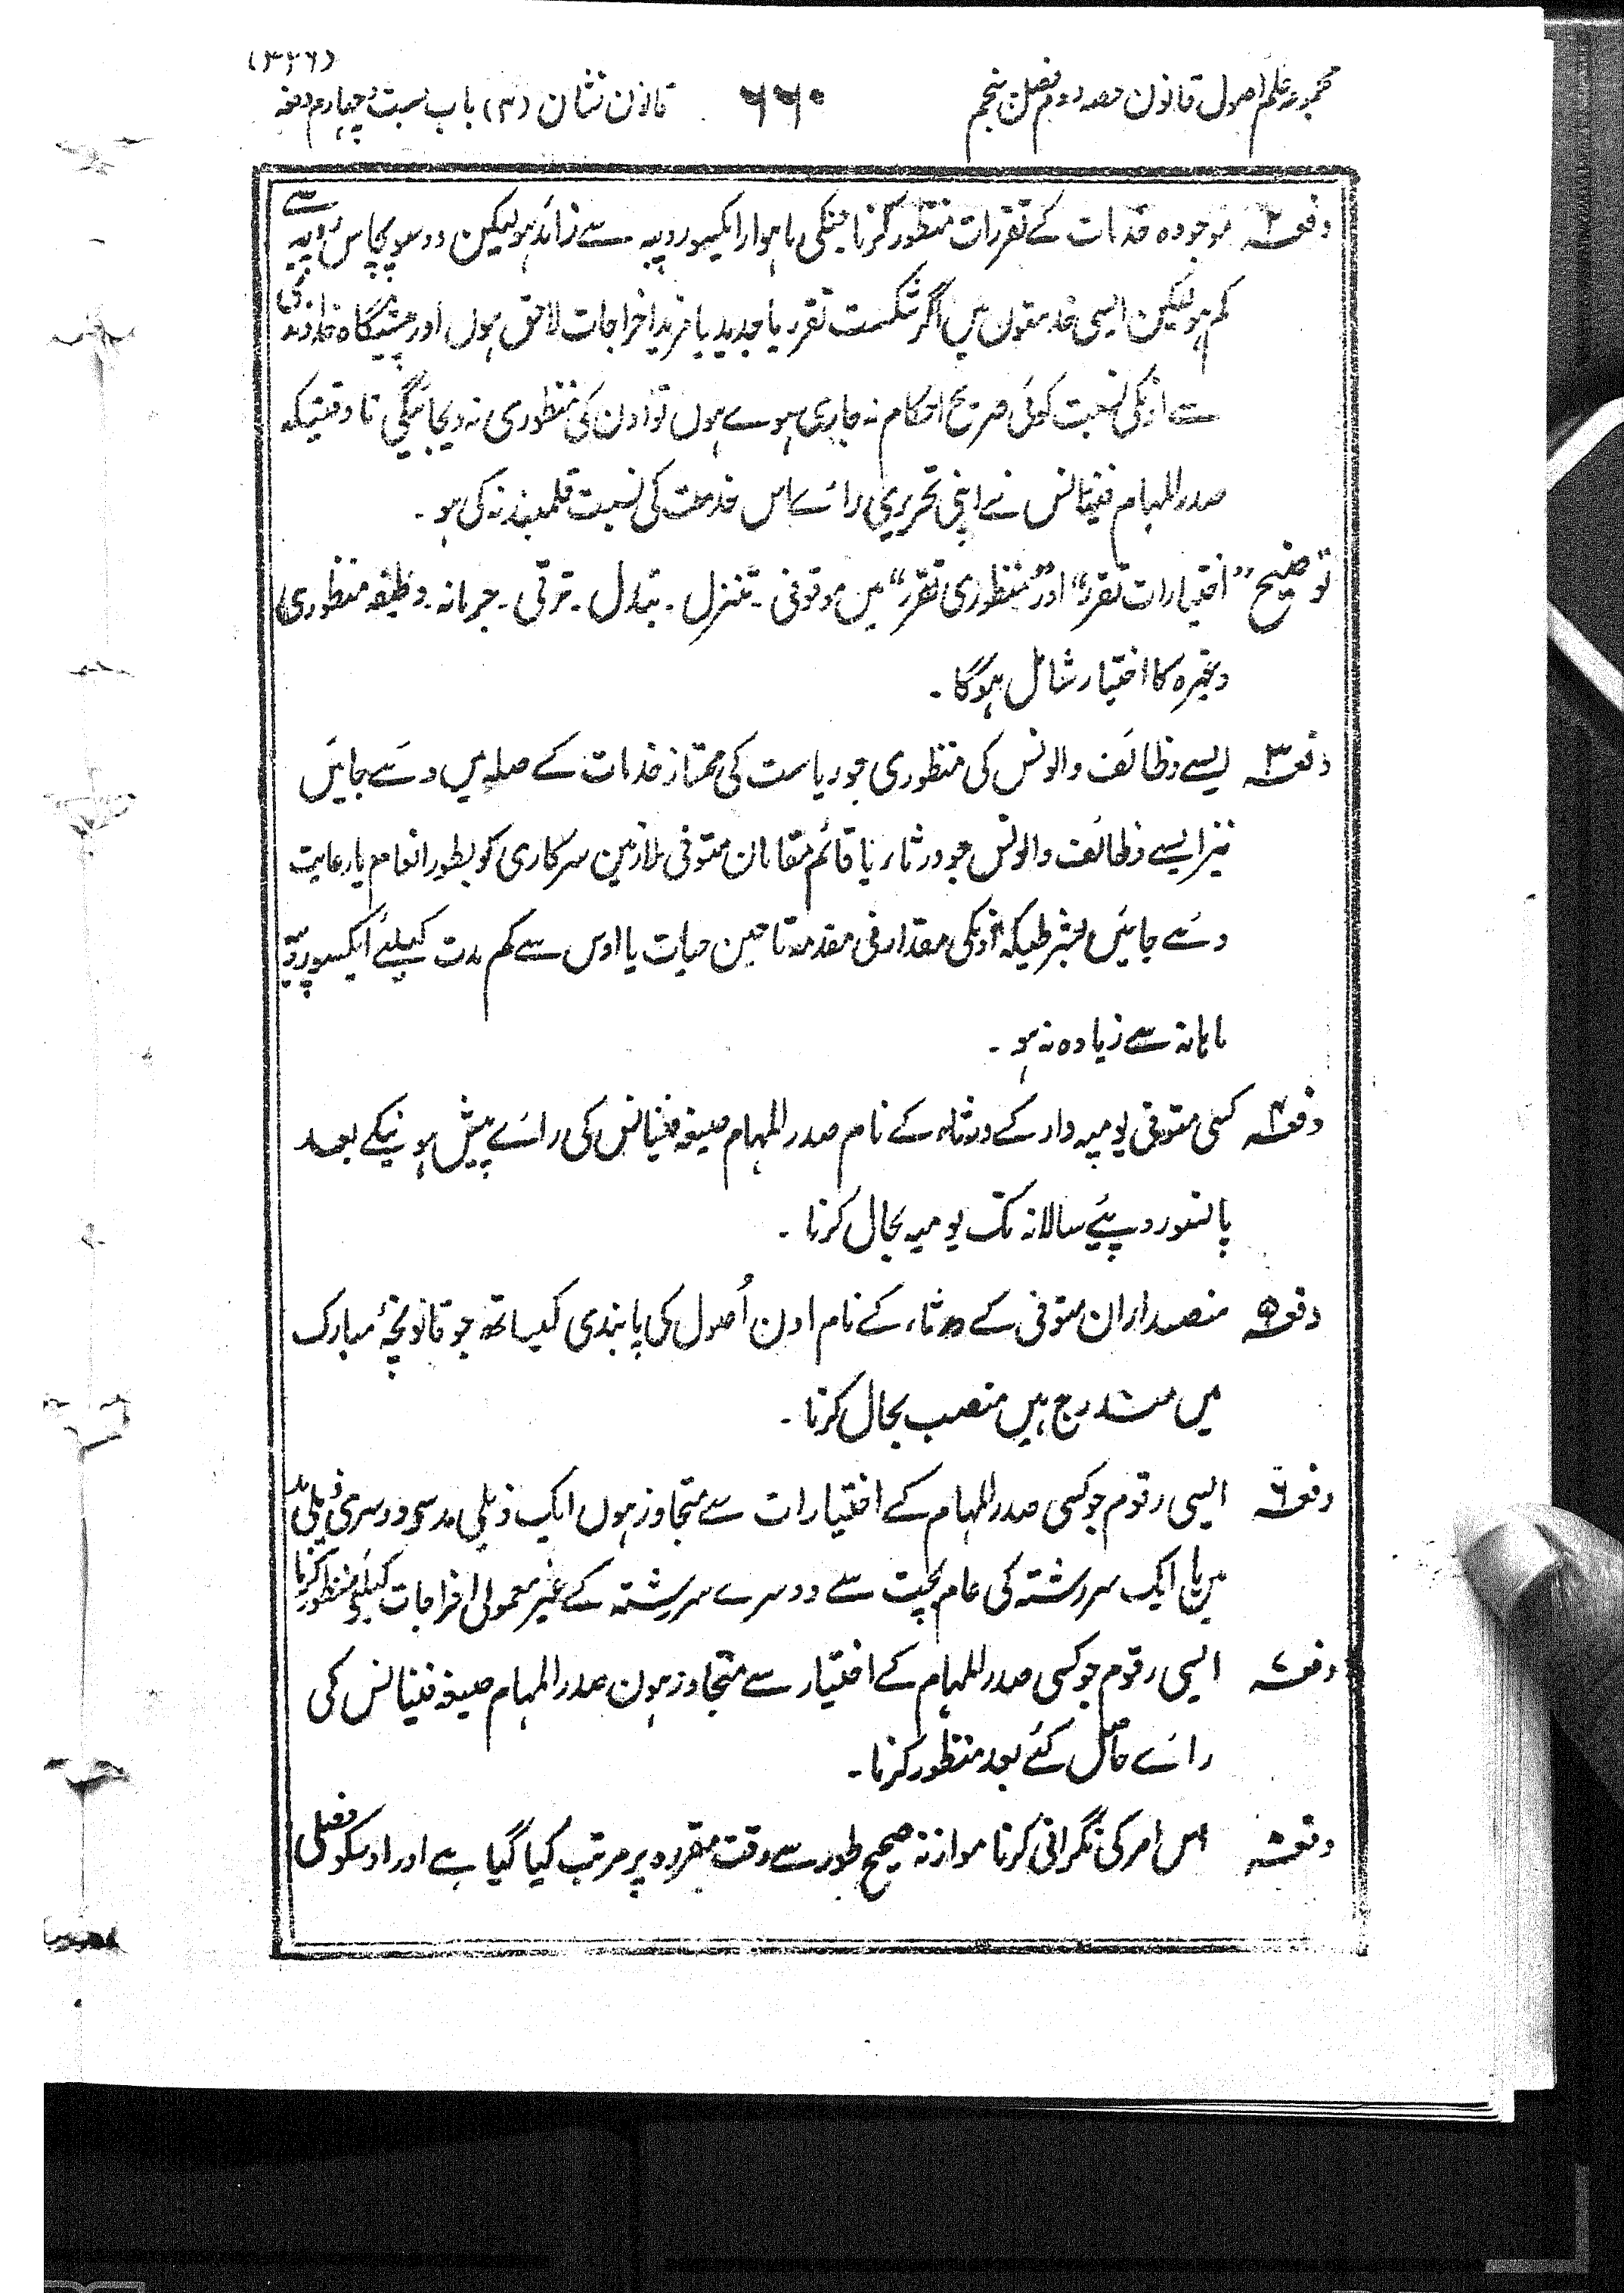 (۳۲۶)
مجموعہ علم اصول قانون حصہ دوم فصل پنجم ۶۶۰ قانون نشان (۳) باب بست و چہارم دفعہ
دفعہ ۲ موجودہ خدمات کے تقررات منظور کرنا جنکی ماہوار ایکسو روپیہ سے زائد ہو لیکن دو سو پچاس روپیہ سے
کم ہو لیکن ایسی خدمتوں میں اگر شکست تقرر یا جدید یا مزید اخراجات لاحق ہوں اور پیشگاہ خداوندی
سے اونکی نسبت کوئی صریح احکام نہ جاری ہوے ہوں تو اون کی منظوری نہ دیجائیگی تا وقتیکہ
صدر المہام فینانس نے اپنی تحریری رائے اس خدمت کی نسبت قلمبند نہ کی ہو ۔
توضیح ”اختیارات تقرر“ اور ”منظوری تقرر“ میں موقوفی ۔ تنزل ۔ تبادل ۔ ترقی ۔ جرمانہ ۔ وظیفہ منظوری
وغیرہ کا اختیار شامل ہوگا ۔
دفعہ ۳ ایسے وظائف و الونس کی منظوری جو ریاست کی ممتاز خدمات کے صلہ میں دئے جائیں
نیز ایسے وظائف و الونس جو ورثاء یا قائم مقامان متوفی ملازمین سرکاری کو بطور انعام یا رعایت
دئے جائیں بشرطیکہ اونکی مقدار فی مقدمہ تا حین حیات یا اوس سے کم مدت کیلئے ایکسو روپیہ
ماہانہ سے زیادہ نہ ہو ۔
دفعہ ۴ کسی متوفی یومیہ دار کے ورثاء کے نام صدر المہام صیغہ فینانس کی رائے پیش ہونیکے بعد
پانسو روپیئے سالانہ تک یومیہ بحال کرنا ۔
دفعہ ۵ منصبداران متوفی کے ورثاء کے نام اون اُصول کی پابندی کیساتھ جو قانونچۂ مبارک
میں مندرج ہیں منصب بحال کرنا ۔
دفعہ ۶ ایسی رقوم جو کسی صدر المہام کے اختیارات سے متجاوز ہوں ایک ذیلی مد سے دوسری ذیلی مد
میں یا ایک سررشتہ کی عام بچت سے دوسرے سررشتہ کے غیر معمولی اخراجات کیلئے منظور کرنا
دفعہ ۷ ایسی رقوم جو کسی صدر المہام کے اختیار سے متجاوز ہوں صدر المہام صیغہ فینانس کی
رائے حاصل کئے بعد منظور کرنا ۔
دفعہ ۸ اس امر کی نگرانی کرنا موازنہ صحیح طور سے وقت مقررہ پر مرتب کیا گیا ہے اور اوسکو فصلی